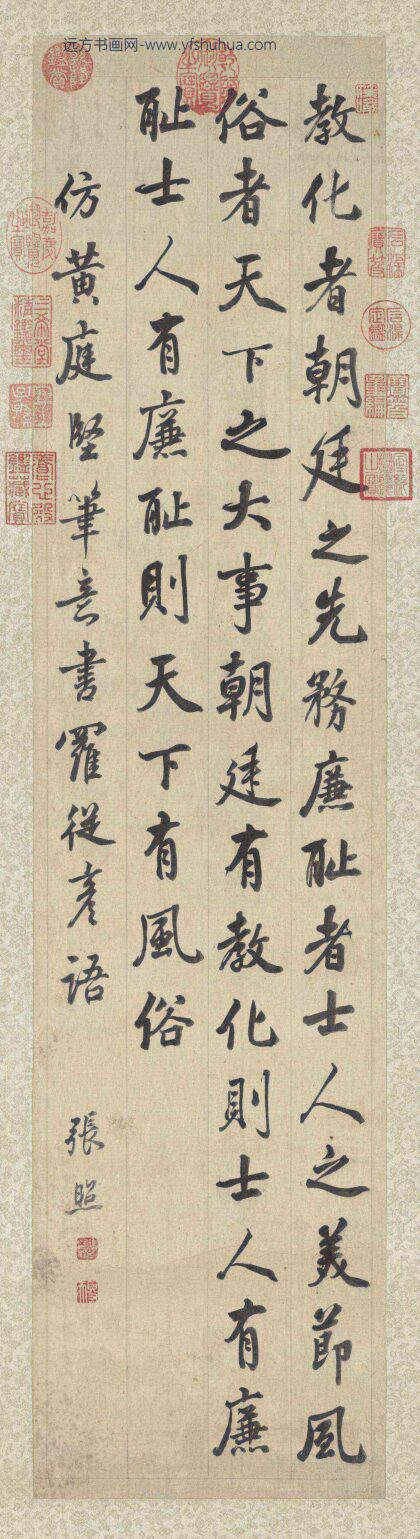 远方书画网-www.yfshuhua.com
教化者朝廷之先務廉耻者士人之美節風
俗者天下之大事朝廷有教化則士人有廉
耻士人有廉耻則天下有風俗
仿黄庭堅筆意書羅從彦語
張照